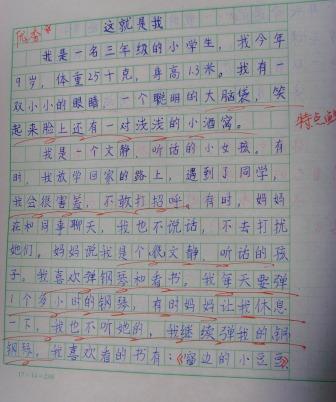 优
这就是我
我是一名三年级的小学生，我今年
9岁，体重25千克，身高1.3米。我有一
双小小的眼睛，一个聪明的大脑袋，笑
起来脸上还有一对浅浅的小酒窝。
特点
我是一个文静、听话的小女孩。有
时，我放学回家的路上，遇到了同学，
我会很害羞，不敢打招呼。有时，妈妈
在和同事聊天，我也不说话，不去打扰
她们，妈妈说我是个很文静、听话的孩
子。我喜欢弹钢琴和看书。我每天要弹
1个多小时的钢琴，有时妈妈让我休息
一下，我也不听她的，我继续弹我的钢
钢琴。我喜欢看的书有：《窗边的小豆豆》